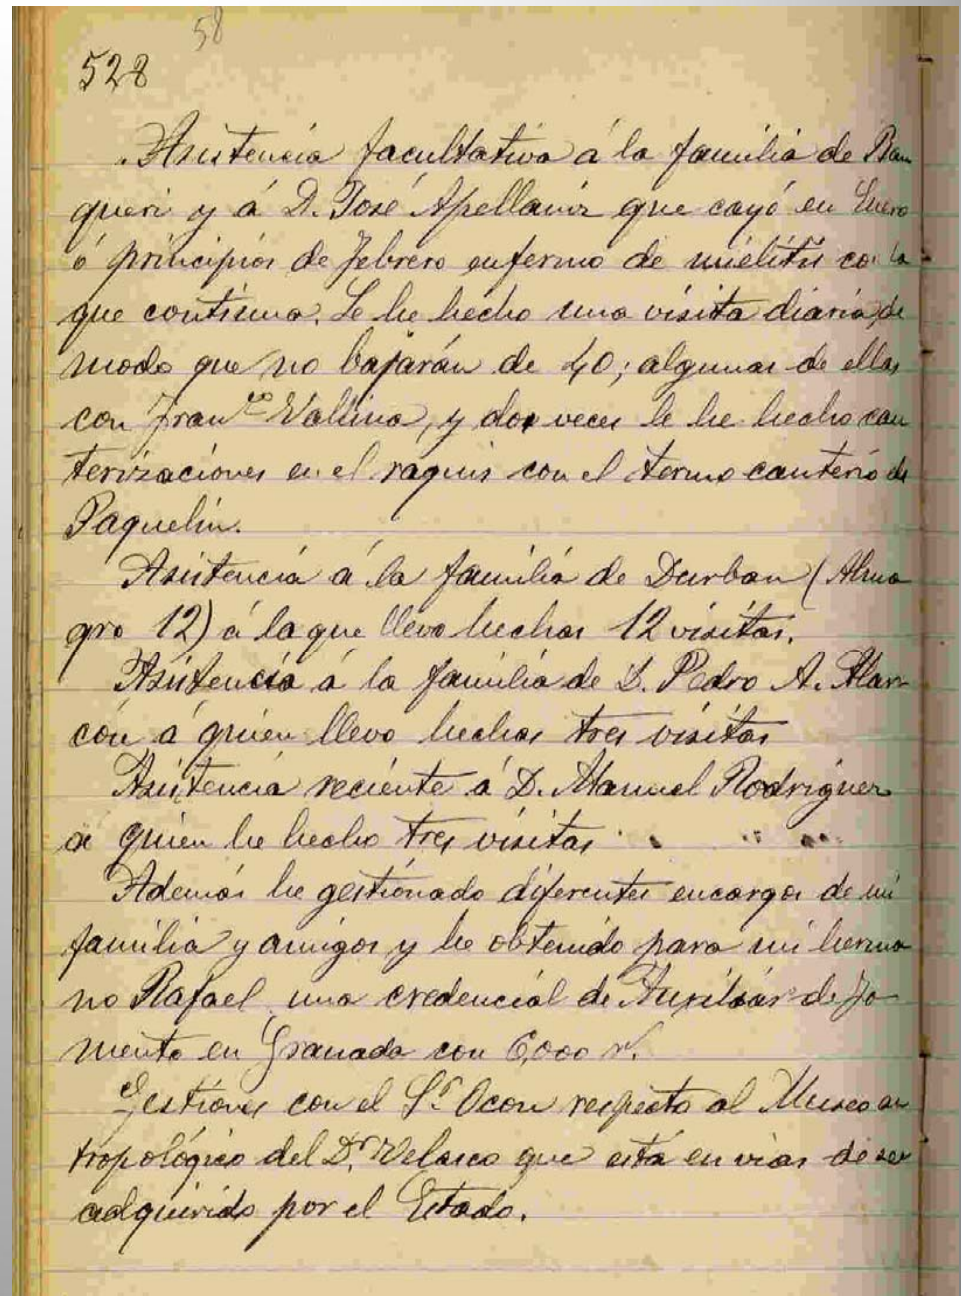 58
528
Asistencia facultativa á la familia de Ran
queri y á D. José Apellaniz que cayó en Enero
ó principios de Febrero enfermo de mielitis con la
que continua. Le he hecho una visita diaria, de
modo que no bajarán de 40; algunas de ellas
con Franco Vallina, y dos veces le he hecho cau
terizaciones en el raquis con el termo cauterio de
Paquelin.
Asistencia á la familia de Durban (Alma
gro 12) á la que llevo hechas 12 visitas.
Asistencia á la familia de D. Pedro A. Alar
cón á quien llevo hechas tres visitas
Asistencia reciente á D. Manuel Rodriguez
á quien he hecho tres visitas
Además he gestionado diferentes encargos de mi
familia y amigos y he obtenido para mi herma
no Rafael una credencial de Auxiliar de Fo
mento en Granada con 6,000 r.
Gestiones con el Sr. Ocon respecto al Museo an
tropológico del Dr. Velasco que está en vias de ser
adquirido por el Estado.